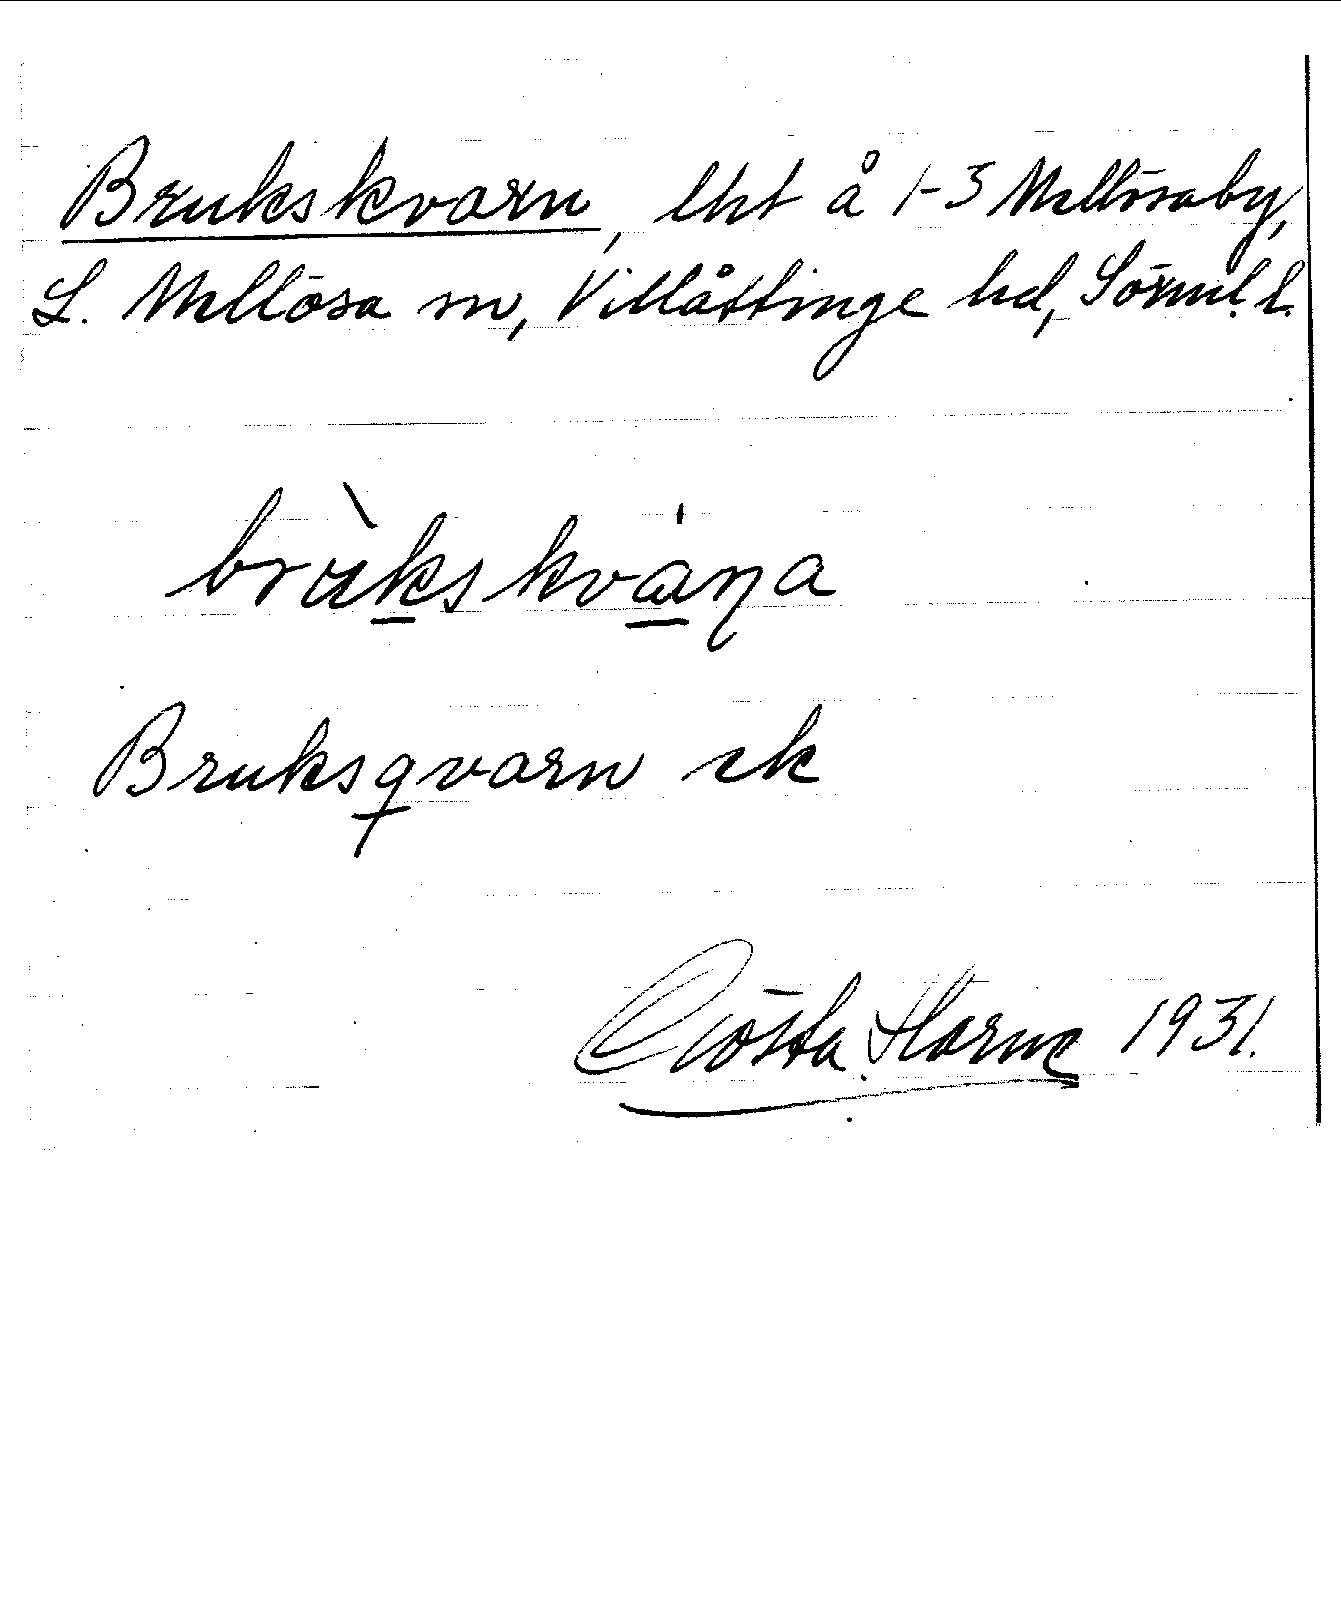 Brukskvarn, lht å 1-3 Mellösaby,
L. Mellösa sn, Villåttinge hd, Sörml. l.
brùkskvàṇa
Bruksqvarn ek
Gösta Harne 1931.